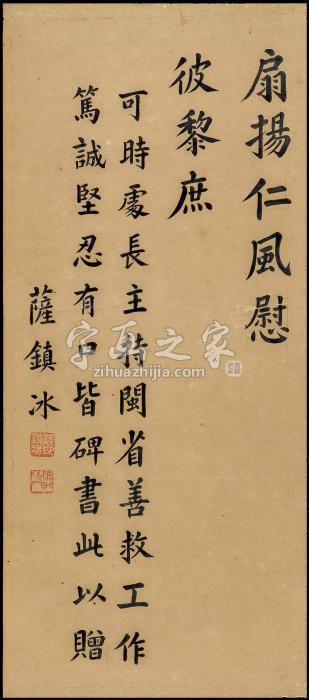 扇揚仁風慰
彼黎庶
可時處長主持閩省善救工作
篤誠堅忍有口皆碑書此以贈
薩鎮冰
字画之家
zihuazhijia.com